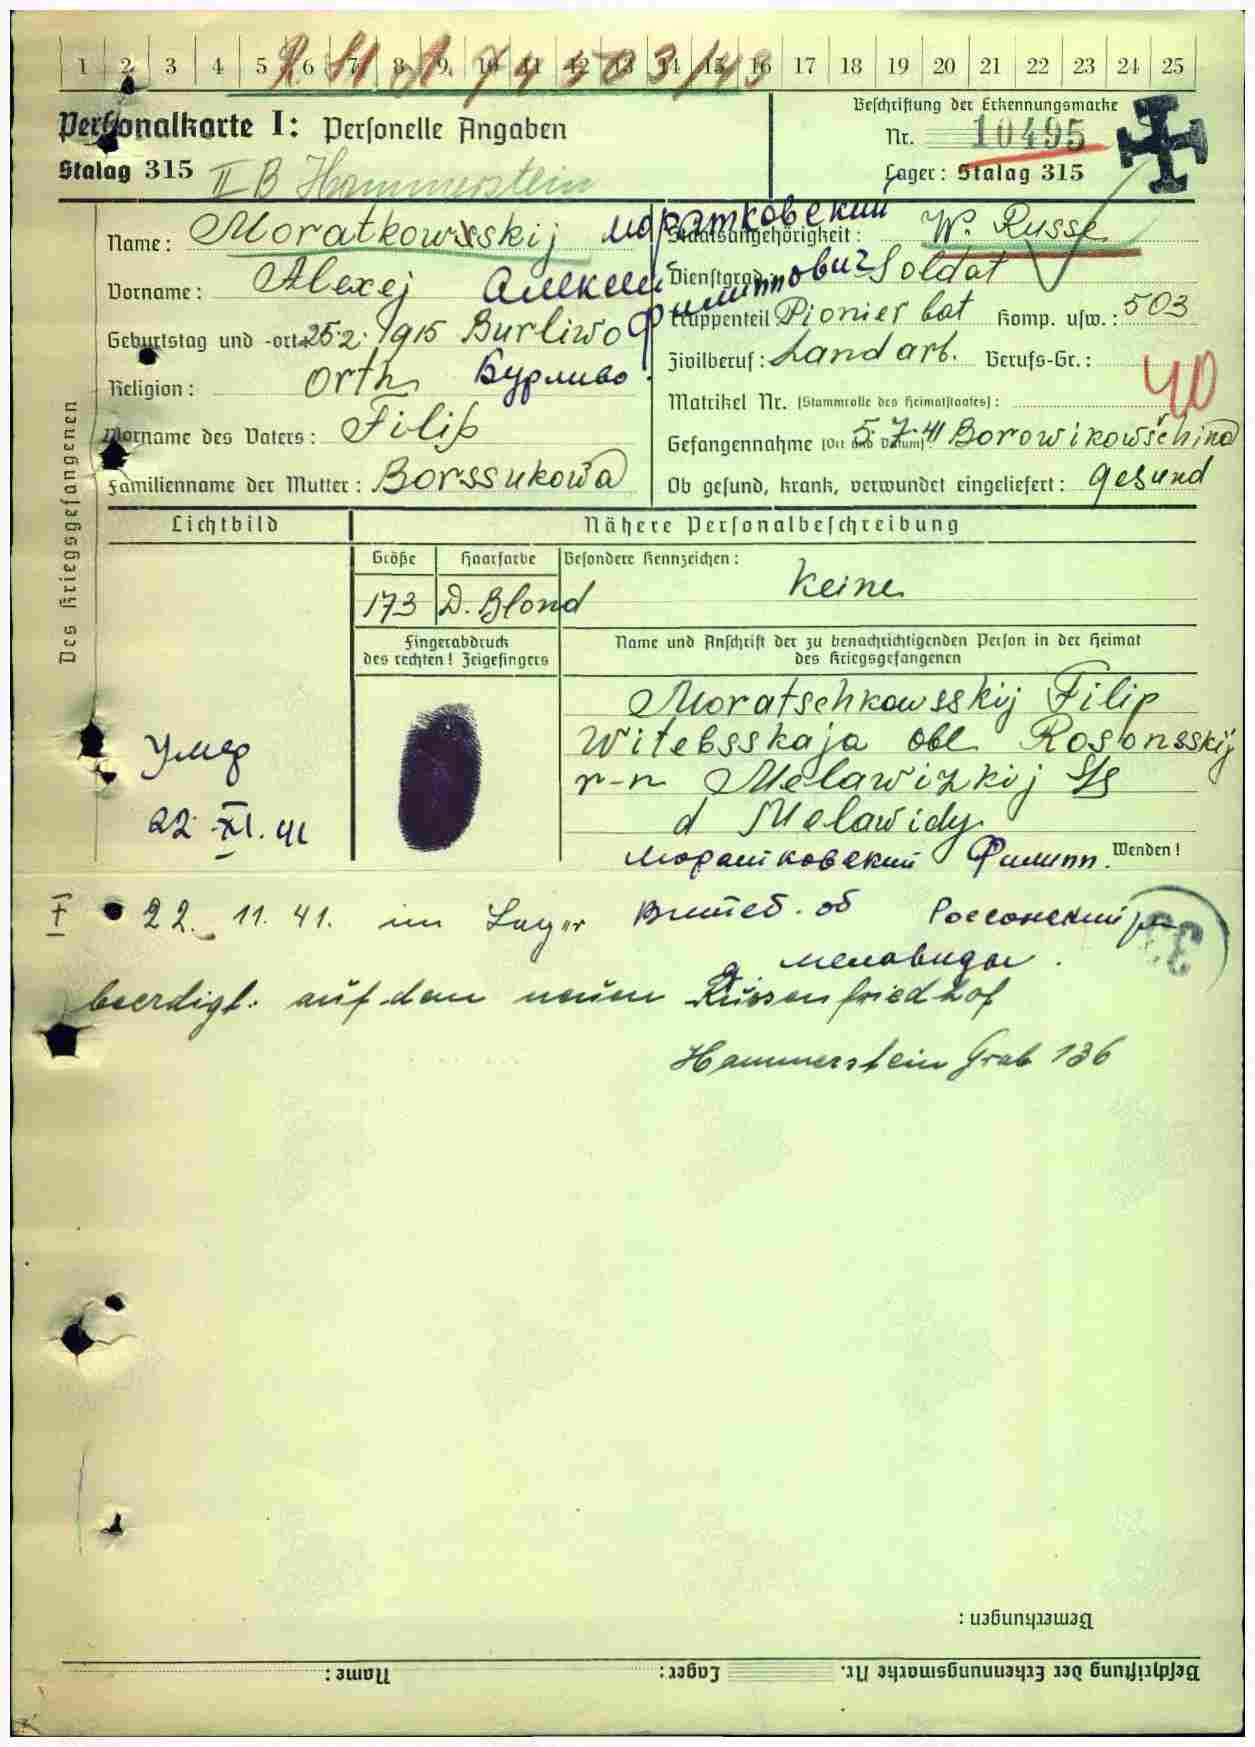 1 2 3 4 5 6 7 8 9 10 11 12 13 14 15 16 17 18 19 20 21 22 23 24 25
Personalkarte I: Personelle Angaben
Beschriftung der Erkennungsmarke
Nr. 10495
Stalag 315 II B Hammerstein
Lager: Stalag 315
Des Kriegsgefangenen
Name: Moratkowsskij Моратковский
Staatsangehörigkeit: W. Russe
Vorname: Alexej Алексей Филиппович
Dienstgrad: Soldat
Geburtstag und -ort: 25.2.1915 Burliwo
Truppenteil Pionier bat Komp. usw.: 503
Religion: orth Бурливо.
Zivilberuf: Landarb. Berufs-Gr.:
40
Matrikel Nr. (Stammrolle des Heimatstaates):
Vorname des Vaters: Filip
Gefangennahme (Ort und Datum): 5.7.41 Borowikowschina
Familienname der Mutter: Borssukowa
Ob gesund, krank, verwundet eingeliefert: gesund
Lichtbild
Nähere Personalbeschreibung
Größe Haarfarbe Besondere Kennzeichen:
173 D. Blond keine
Fingerabdruck
des rechten! Zeigefingers
Name und Anschrift der zu benachrichtigenden Person in der Heimat
des Kriegsgefangenen
Moratschkowsskij Filip
Witebsskaja obl Rosonsskij
r-n Melawizkij S/S
d Melawidy
Умер
22.XI.41
Моратковский Филипп.
Wenden!
22. 11. 41. im Lager
Витеб. об Россонский р-н
д. Меловиды.
beerdigt: auf dem neuen Russenfriedhof
Hammerstein Grab 136
Bemerkungen:
Beschriftung der Erkennungsmarke Nr. Lager: Name: